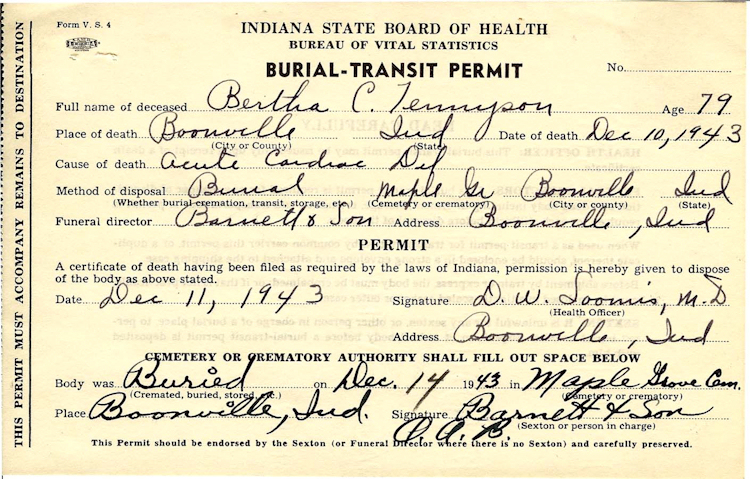 Form V. S. 4
INDIANA STATE BOARD OF HEALTH
BUREAU OF VITAL STATISTICS
BURIAL-TRANSIT PERMIT
No.
Full name of deceased Bertha C. Tennyson Age 79
Place of death Boonville Ind Date of death Dec 10, 1943
(City or County) (State)
Cause of death Acute Cardiac Dil
Method of disposal Burial Maple Gr Boonville Ind
(Whether burial cremation, transit, storage, etc.) (Cemetery or crematory) (City or county) (State)
Funeral director Barnett & Son Address Boonville, Ind
PERMIT
A certificate of death having been filed as required by the laws of Indiana, permission is hereby given to dispose
of the body as above stated.
Date Dec 11, 1943 Signature D. W. Loomis, M.D
(Health Officer)
Address Boonville, Ind
CEMETERY OR CREMATORY AUTHORITY SHALL FILL OUT SPACE BELOW
Body was Buried on Dec. 14 1943 in Maple Grove Cem.
(Cremated, buried, stored, etc.) (Cemetery or crematory)
Place Boonville, Ind. Signature Barnett & Son
(Sexton or person in charge)
This Permit should be endorsed by the Sexton (or Funeral Director where there is no Sexton) and carefully preserved.
THIS PERMIT MUST ACCOMPANY REMAINS TO DESTINATION